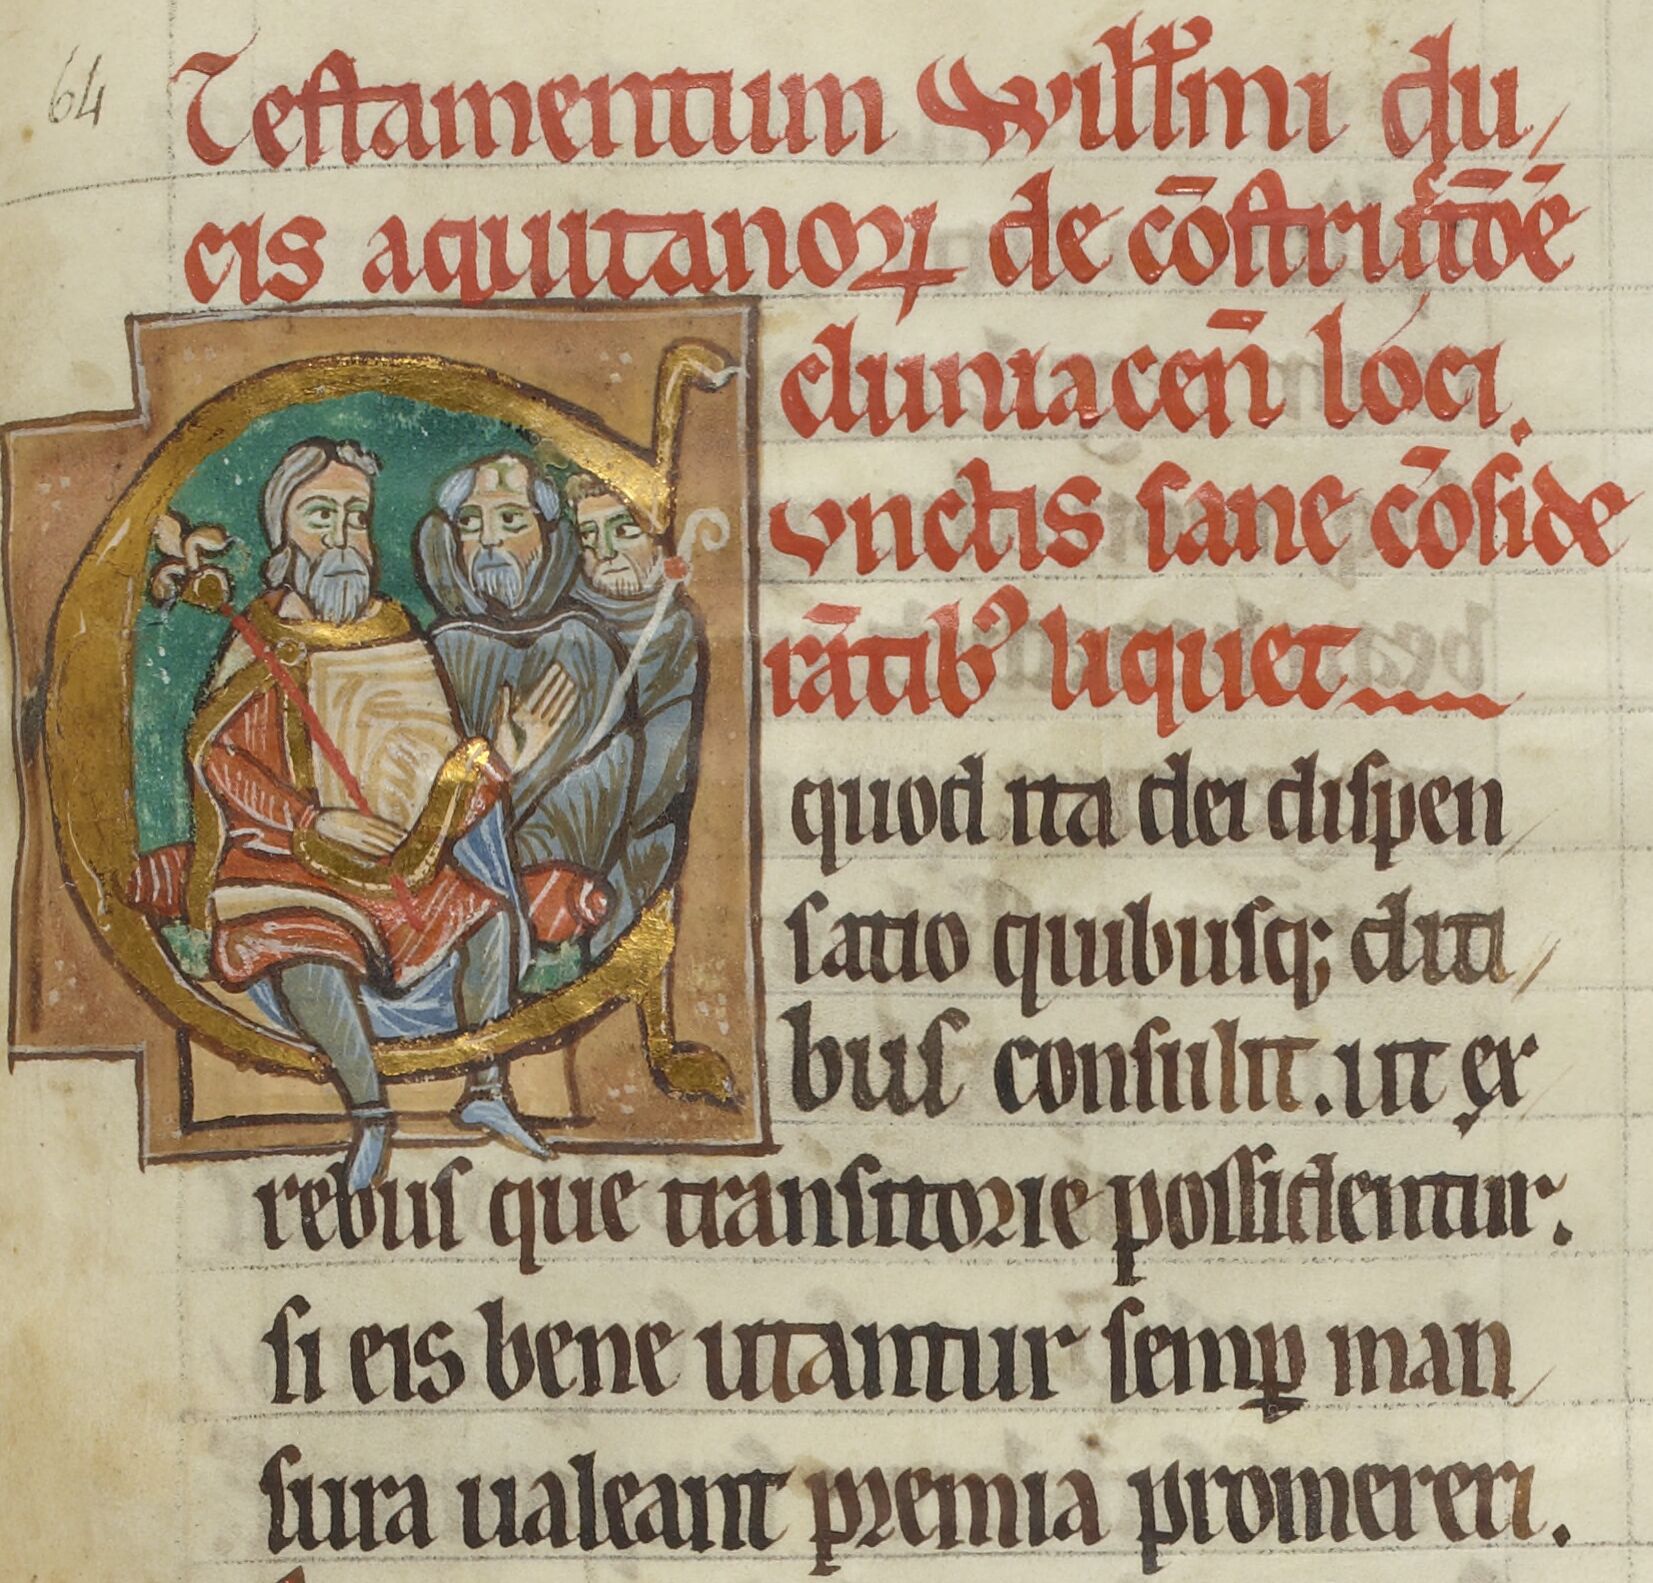 64
Testamentum Willi̅mi du-
cis aquitanoꝝ de co̅structio̅e̅
cluniacen̅ loci.
Cunctis sane co̅side
ra̅tib; liquet
quod ita dei dispen-
satio quibusq; diti-
bus consulit. ut ex
rebus que transitorie possidentur.
si eis bene utantur semꝑ man-
sura ualeant premia promereri.